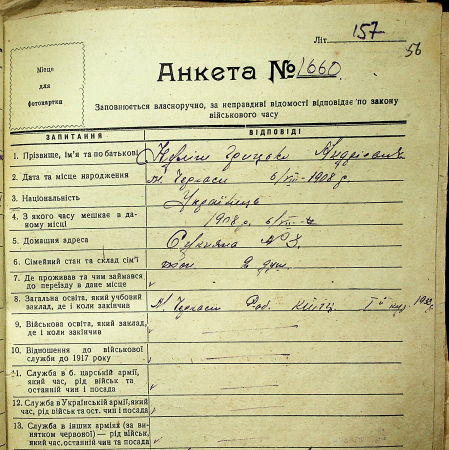 Літ. 157
56
Місце
для
фотокартки
Анкета № 1660
Заповнюється власноручно, за неправдиві відомості відповідає по закону
військового часу
ЗАПИТАННЯ ВІДПОВІДІ
1. Прізвище, ім'я та по батькові Грицько
2. Дата та місце народження м. Черкаси 6/VIII-1908 р.
3. Національність Українець
4. З якого часу мешкає в даному місці 1908 р. 6/VIII
5. Домашня адреса №
6. Сімейний стан та склад сім'ї 2 душ.
7. Де проживав та чим займався
до переїзду в дане місце
8. Загальна освіта, який учбовий
заклад, де і коли закінчив м. Черкаси Роб.
9. Військова освіта, який заклад,
де і коли закінчив
10. Відношення до військової
служби до 1917 року
11. Служба в б. царській армії,
який час, рід військ та
останній чин і посада
12. Служба в Українській армії, який
час, рід військ та ост. чин і посада
13. Служба в інших арміях (за ви-
нятком червоної) — рід військ,
який час, останній чин та посада